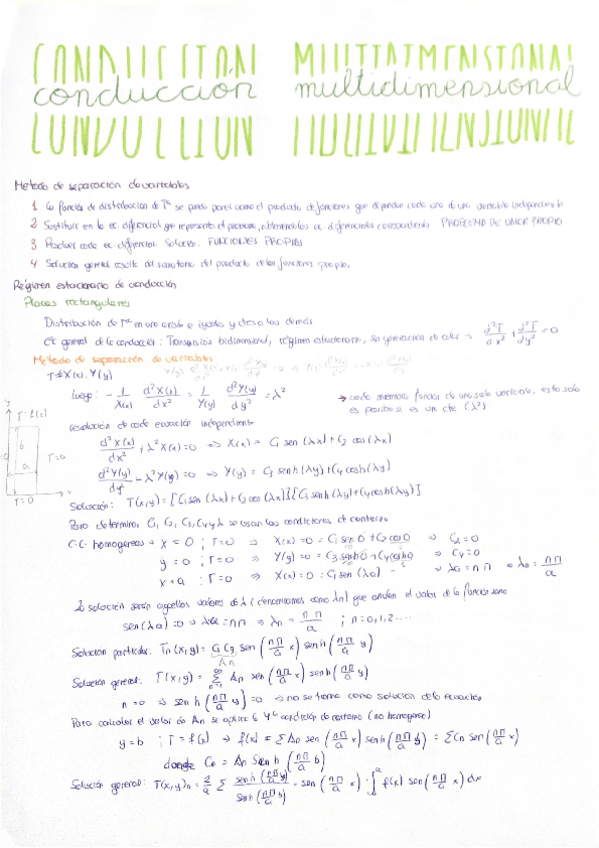 conducción multidimensional
Metodo de separación de variables
1 La función de distribución de Tª se puede poner como el producto de funciones que dependan cada una de una variable independiente
2 Sustituir en la ec diferencial que representa el proceso, obteniendo las ec diferenciales correspondientes PROBLEMA DE VALOR PROPIO
3 Resolver cada ec diferencial. Solución: FUNCIONES PROPIAS
4 Solución general resulta del sumatorio del producto de las funciones propias.
Régimen estacionario de conducción
Placas rectangulares
Distribución de Tª en una arista e iguales y ctes a las demás
Ec general de la conducción: Transmisión bidimensional, régimen estacionario, sin generación de calor → d²T/dx² + d²T/dy² = 0
Método de separación de variables
T = X(x) · Y(y)
luego: - 1/X(x) d²X(x)/dx² = 1/Y(y) d²Y(y)/dy² = λ²
→ cada miembro función de una sola variable, esto solo
es posible si es un cte (λ²)
resolución de cada ecuación independiente
y T = f(x)
d²X(x)/dx² + λ² X(x) = 0 ⇒ X(x) = C₁ sen (λx) + C₂ cos (λx)
b T=0
a
d²Y(y)/dy² - λ² Y(y) = 0 ⇒ Y(y) = C₃ senh (λy) + C₄ cosh (λy)
T=0 x
Solución: T(x,y) = [C₁ sen (λx) + C₂ cos (λx)][C₃ senh (λy) + C₄ cosh (λy)]
Para determinar C₁, C₂, C₃, C₄ y λ se usan las condiciones de contorno
C.C. homogéneas → x = 0 ; T=0 ⇒ X(x) = 0 = C₁ sen 0 + C₂ cos 0 ⇒ C₂ = 0
y = 0 ; T=0 ⇒ Y(y) = 0 = C₃ senh 0 + C₄ cosh 0 ⇒ C₄ = 0
x = a ; T=0 ⇒ X(x) = 0 = C₁ sen (λa) ⇒ λa = nπ ⇒ λn = nπ/a
La solución serán aquellos valores de λ (denominamos como λn) que anulen el valor de la función seno
sen (λa) = 0 ⇒ λa = nπ ⇒ λn = nπ/a ; n = 0, 1, 2 ....
Solución particular: Tn (x,y) = C₁ C₃ sen (nπ/a x) senh (nπ/a y)
An
Solución general: T(x,y) = Σ An sen (nπ/a x) senh (nπ/a y)
n=1
n = 0 ⇒ senh (nπ/a y) = 0 ⇒ no se toma como solución de la ecuación
Para calcular el valor de An se aplica la 4ª condición de contorno (no homogénea)
y = b ; T = f(x) ⇒ f(x) = Σ An sen (nπ/a x) senh (nπ/a b) = Σ Cn sen (nπ/a x)
donde Cn = An senh (nπ/a b)
Solución general: T(x,y)n = 2/a Σ senh (nπ/a y)/senh (nπ/a b) · sen (nπ/a x) · ∫₀ᵃ f(x) sen (nπ/a x) dx